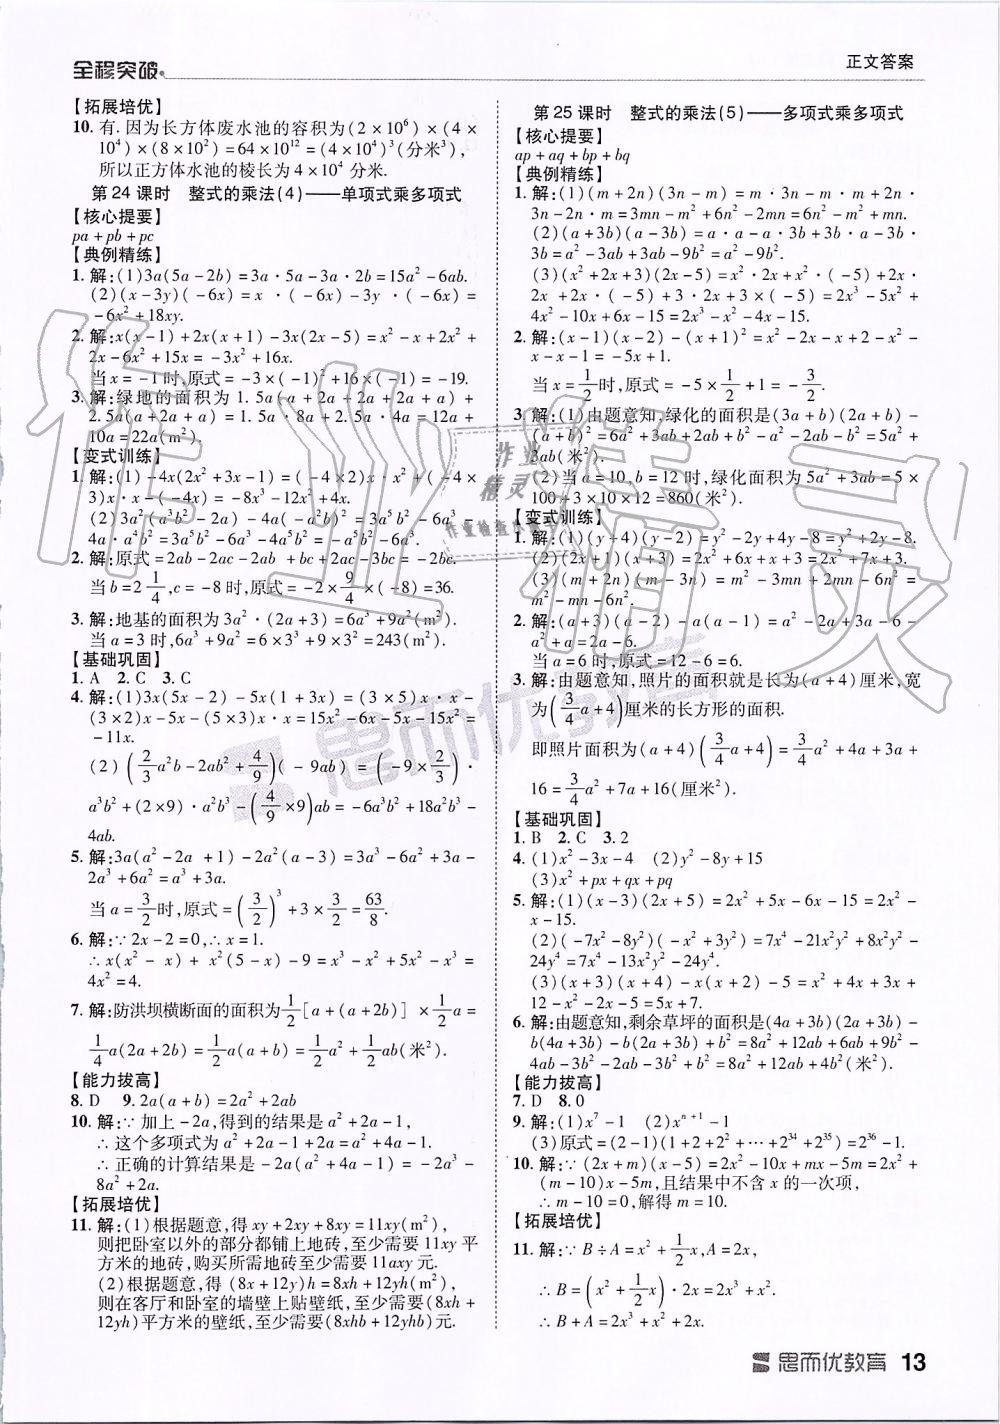 全程突破
正文答案
【拓展培优】
10. 有. 因为长方体废水池的容积为(2×10⁶)×(4×
10⁴)×(8×10²)=64×10¹²=(4×10⁴)³(分米³),
所以正方体水池的棱长为4×10⁴分米.
第24课时 整式的乘法(4)——单项式乘多项式
【核心提要】
pa+pb+pc
【典例精练】
1. 解:(1)3a(5a-2b)=3a·5a-3a·2b=15a²-6ab.
(2)(x-3y)(-6x)=x·(-6x)-3y·(-6x)=
-6x²+18xy.
2. 解:x(x-1)+2x(x+1)-3x(2x-5)=x²-x+2x²+
2x-6x²+15x=-3x²+16x.
当x=-1时,原式=-3×(-1)²+16×(-1)=-19.
3. 解:绿地的面积为1.5a(a+2a+2a+2a+a)+
2.5a(a+2a+a)=1.5a·8a+2.5a·4a=12a+
10a=22a(m²).
【变式训练】
1. 解:(1)-4x(2x²+3x-1)=(-4×2)x·x²+(-4×
3)x·x-(-4x)=-8x³-12x²+4x.
(2)3a²(a³b²-2a)-4a(-a²b)²=3a⁵b²-6a³-
4a·a⁴b²=3a⁵b²-6a³-4a⁵b²=-a⁵b²-6a³.
2. 解:原式=2ab-2ac-2ab+bc+2ac-3bc=-2bc.
当b=2 1/4,c=-8时,原式=-2×9/4×(-8)=36.
3. 解:地基的面积为3a²·(2a+3)=6a³+9a²(m²).
当a=3时,6a³+9a²=6×3³+9×3²=243(m²).
【基础巩固】
1. A 2. C 3. C
4. 解:(1)3x(5x-2)-5x(1+3x)=(3×5)x·x-
(3×2)x-5x-(5×3)x·x=15x²-6x-5x-15x²=
-11x.
(2)(2/3a²b-2ab²+4/9)(-9ab)=(-9×2/3)·
a³b²+(2×9)·a²b³-(4/9×9)ab=-6a³b²+18a²b³-
4ab.
5. 解:3a(a²-2a+1)-2a²(a-3)=3a³-6a²+3a-
2a³+6a²=a³+3a.
当a=3/2时,原式=(3/2)³+3×3/2=63/8.
6. 解:∵2x-2=0,∴x=1.
∴x(x²-x)+x²(5-x)-9=x³-x²+5x²-x³=
4x²=4.
7. 解:防洪坝横断面的面积为1/2[a+(a+2b)]×1/2a=
1/4a(2a+2b)=1/2a(a+b)=1/2a²+1/2ab(米²).
【能力拔高】
8. D 9. 2a(a+b)=2a²+2ab
10. 解:∵加上-2a,得到的结果是a²+2a-1,
∴这个多项式为a²+2a-1+2a=a²+4a-1.
∴正确的计算结果是-2a(a²+4a-1)=-2a³-
8a²+2a.
【拓展培优】
11. 解:(1)根据题意,得xy+2xy+8xy=11xy(m²),
则把卧室以外的部分都铺上地砖,至少需要11xy平
方米的地砖,购买所需地砖至少需要11axy元.
(2)根据题意,得(8x+12y)h=8xh+12yh(m²),
则在客厅和卧室的墙壁上贴壁纸,至少需要(8xh+
12yh)平方米的壁纸,至少需要(8xhb+12yhb)元.
第25课时 整式的乘法(5)——多项式乘多项式
【核心提要】
ap+aq+bp+bq
【典例精练】
1. 解:(1)(m+2n)(3n-m)=m·3n-m·m+2n·
3n-2n·m=3mn-m²+6n²-2mn=6n²-m²+mn.
(2)(a+3b)(a-3b)=a·a-a·3b+3b·a-3b·
3b=a²-3ab+3ab-9b²=a²-9b².
(3)(x²+2x+3)(2x-5)=x²·2x+x²·(-5)+2x·
2x+2x·(-5)+3·2x+3×(-5)=2x³-5x²+
4x²-10x+6x-15=2x³-x²-4x-15.
2. 解:(x-1)(x-2)-(x+1)²=x²-2x-x+2-x²-
x-x-1=-5x+1.
当x=1/2时,原式=-5×1/2+1=-3/2.
3. 解:(1)由题意知,绿化的面积是(3a+b)(2a+b)-
(a+b)²=6a²+3ab+2ab+b²-a²-2ab-b²=5a²+
3ab(米²).
(2)当a=10,b=12时,绿化面积为5a²+3ab=5×
100+3×10×12=860(米²).
【变式训练】
1. 解:(1)(y+4)(y-2)=y²-2y+4y-8=y²+2y-8.
(2)(2x+1)(x+3)=2x²+6x+x+3=2x²+7x+3.
(3)(m+2n)(m-3n)=m²-3mn+2mn-6n²=
m²-mn-6n².
2. 解:(a+3)(a-2)-a(a-1)=a²-2a+3a-6-
a²+a=2a-6.
当a=6时,原式=12-6=6.
3. 解:由题意知,照片的面积就是长为(a+4)厘米,宽
为(3/4a+4)厘米的长方形的面积.
即照片面积为(a+4)(3/4a+4)=3/4a²+4a+3a+
16=3/4a²+7a+16(厘米²).
【基础巩固】
1. B 2. C 3. 2
4. (1)x²-3x-4 (2)y²-8y+15
(3)x²+px+qx+pq
5. 解:(1)(x-3)(2x+5)=2x²+5x-6x-15=2x²-
x-15.
(2)(-7x²-8y²)(-x²+3y²)=7x⁴-21x²y²+8x²y²-
24y⁴=7x⁴-13x²y²-24y⁴.
(3)(x+3)(x+4)-x(x+2)-5=x²+4x+3x+
12-x²-2x-5=5x+7.
6. 解:由题意知,剩余草坪的面积是(4a+3b)(2a+3b)-
b(4a+3b)-b(2a+3b)+b²=8a²+12ab+6ab+9b²-
4ab-3b²-2ab-3b²+b²=8a²+12ab+4b²(米²).
【能力拔高】
7. D 8. 0
9. 解:(1)x⁷-1 (2)xⁿ⁺¹-1
(3)原式=(2-1)(1+2+2²+⋯+2³⁴+2³⁵)=2³⁶-1.
10. 解:∵(2x+m)(x-5)=2x²-10x+mx-5m=2x²+
(m-10)x-5m,且结果中不含x的一次项,
∴m-10=0,解得m=10.
【拓展培优】
11. 解:∵B÷A=x²+1/2x,A=2x,
∴B=(x²+1/2x)·2x=2x³+x².
∴B+A=2x³+x²+2x.
作业精灵
作业
精灵
思而优教育
思而优教育 13